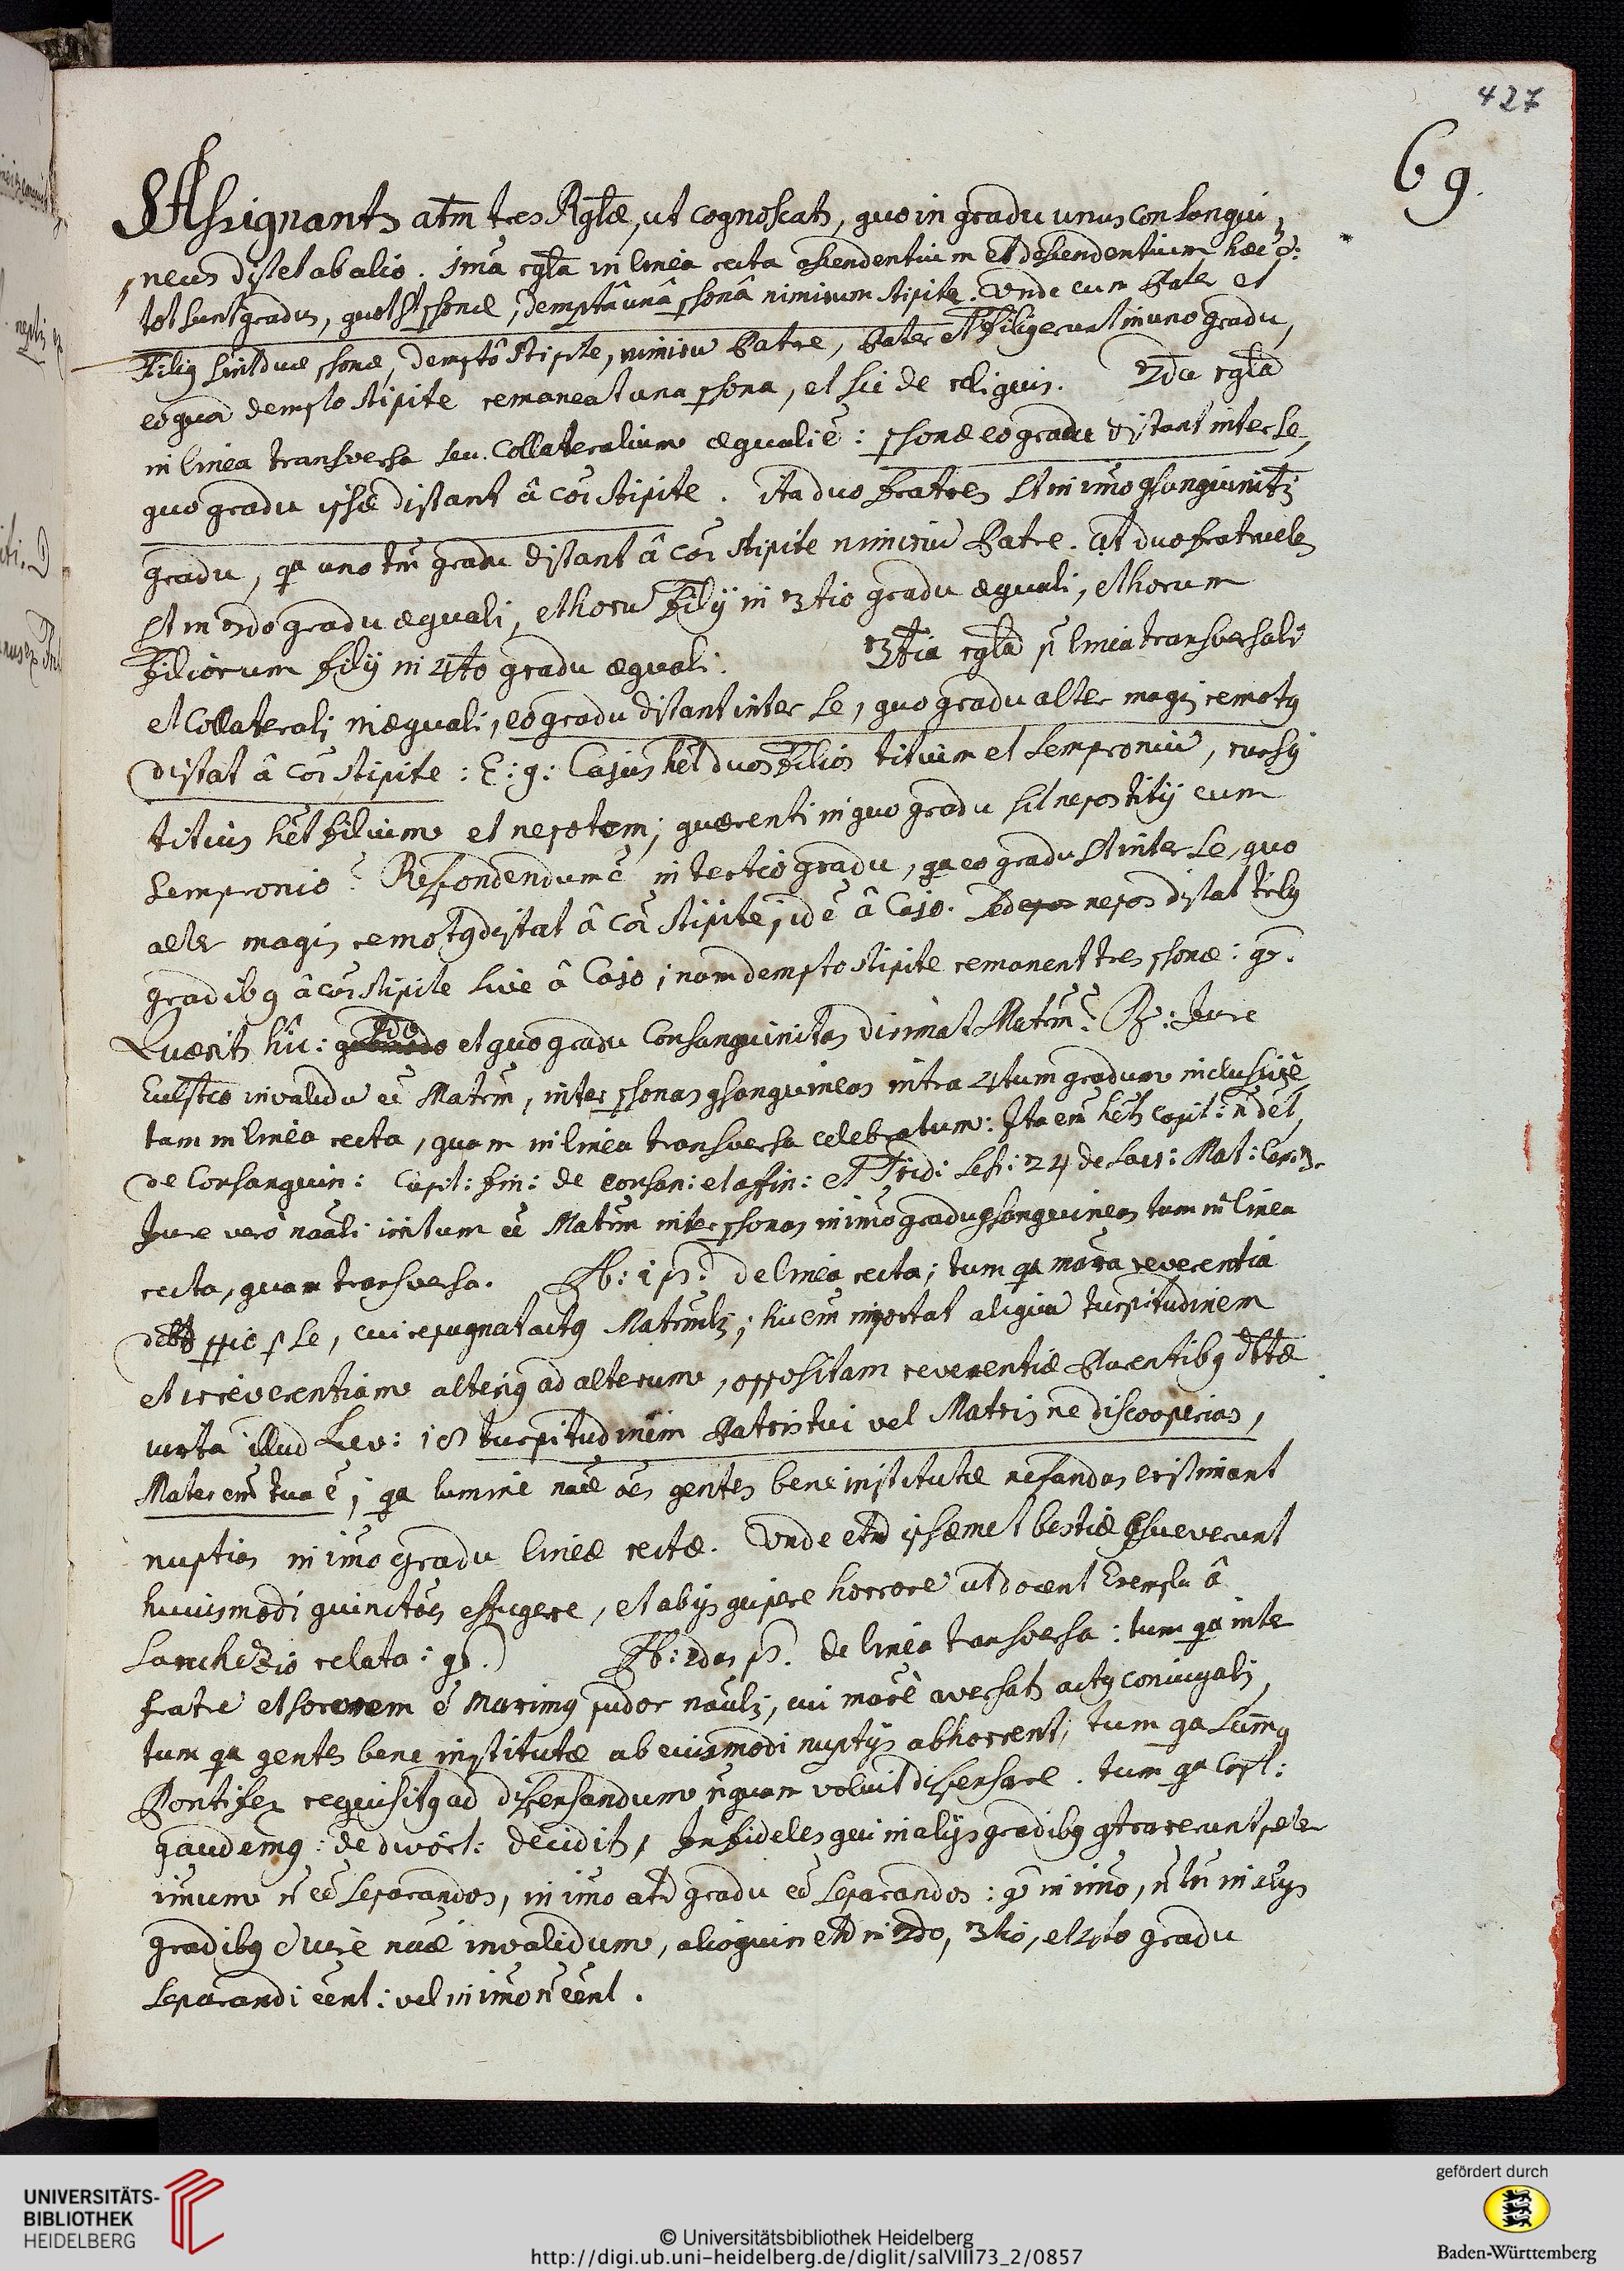 427
69.
Assignantr atm̃ tres Rglæ, ut cognoscatr, quo in gradu unus consangui-
neus distet ab alio. 1ma rgla in linea recta ascendentium et descendentium hæc ẽ:
tot sunt gradus, quot st psonæ, demptâ unâ psonâ nimirum stipite. Unde cum Pater et
Filig sint duæ psonæ, demptô stipite, nimirũ Patre, Pater et Filig erunt in uno gradu,
eo quod dempto stipite remaneat una psona, et sic de reliquis. 2da rgla
in linea transversa seu Collateralium æquali ẽ: psonæ eo gradu distant inter se,
quo gradu ipsæ distant â cõi stipite. ita duo fratres st in imo gsanguinitis
gradu, qa uno tm̃ gradu distant â cõi stipite nimirũ Patre. at duo fratrueles
st in 2do gradu æquali, et horũ filij in 3tio gradu æquali, et horum
filiorum filij in 4to gradu æquali. 3tia rgla p linea transversali
et Collaterali inæquali, eo gradu distant inter se, quo gradu alter magis remotg
distat â cõi stipite: E: g: Cajus het duos filios titium et semproniũ, rursg
titius het filium et nepotem; quærenti in quo gradu sit nepos titij cum
sempronio? Respondendum ẽ in tertio gradu, qa eo gradu st inter se, quo
alter magis remotg distat â cõi stipite, id ẽ â Cajo. sed nepos distat tribg
gradibg â cõi stipite sive â Cajo; nam dempto stipite remanent tres psonæ: gõ.
Quæritr hîc: et quo gradu Consanguinitas dirimat Matrm̃? R: Jure
Ecclstco invalidũ eẽ Matrm̃, inter psonas gsanguineas intra 4tum gradum inclusivè,
tam in linea recta, quam in linea transversa celebratum: Ita em̃ hetr capit: ñ det,
de Consanguin: Capit: fin: de consan: et affin: et Trid: sess: 24 de Sacr: Mat: Can: 3.
Jure verò naãli irritum eẽ Matrm̃ inter psonas in imo gradu gsanguineas tam in linea
recta, quam transversa. Pb: 1 ps. de linea recta; tum qa maxa reverentia
debtr ppiè p se, cui repugnat actg Matrmls; hic em̃ importat aliquã turpitudinem
et irreverentiam alterig ad alterum, oppositam reverentiæ Parentibg dbtæ
iuxta illud Lev: 18 turpitudinem Patris tui vel Matris ne discooperias,
Mater em̃ tua ẽ; qa lumine naæ oẽs gentes bene institutæ nefandas existimant
nuptias in imo gradu lineæ rectæ. Unde etã ipsæmet bestiæ gsueverunt
huiusmodi guinctões effugere, et ab ijs gcipere horrorẽ ut docent Exempla â
Sanchezio relata: gõ. Pb: 2da ps. de linea transversa: tum qa inter
fratrẽ et sororem ẽ maximg pudor naãlis, cui maxè aversatr actg coniugalis,
tum qa gentes bene institutæ ab euismodi nuptijs abhorrent; tum qa sum̃g
Pontifex requisitg ad dispensandum ñquam voluit dispensare. tum qa Capt:
gaudemg: de divort: deciditr, Infideles qui in alijs gradibg gtraxerunt, pter
imum ñ eẽ separandos, in imo atd gradu eẽ separandos: gõ in imo, ñ tm̃ in alijs
gradibg ẽ iurè naæ invalidum, alioquin etã in 2do, 3tio, et 4to gradu
separandi eẽnt: vel in imo ñ eẽnt.
UNIVERSITÄTS-
BIBLIOTHEK
HEIDELBERG
© Universitätsbibliothek Heidelberg
http://digi.ub.uni-heidelberg.de/diglit/salVIII73_2/0857
gefördert durch
Baden-Württemberg